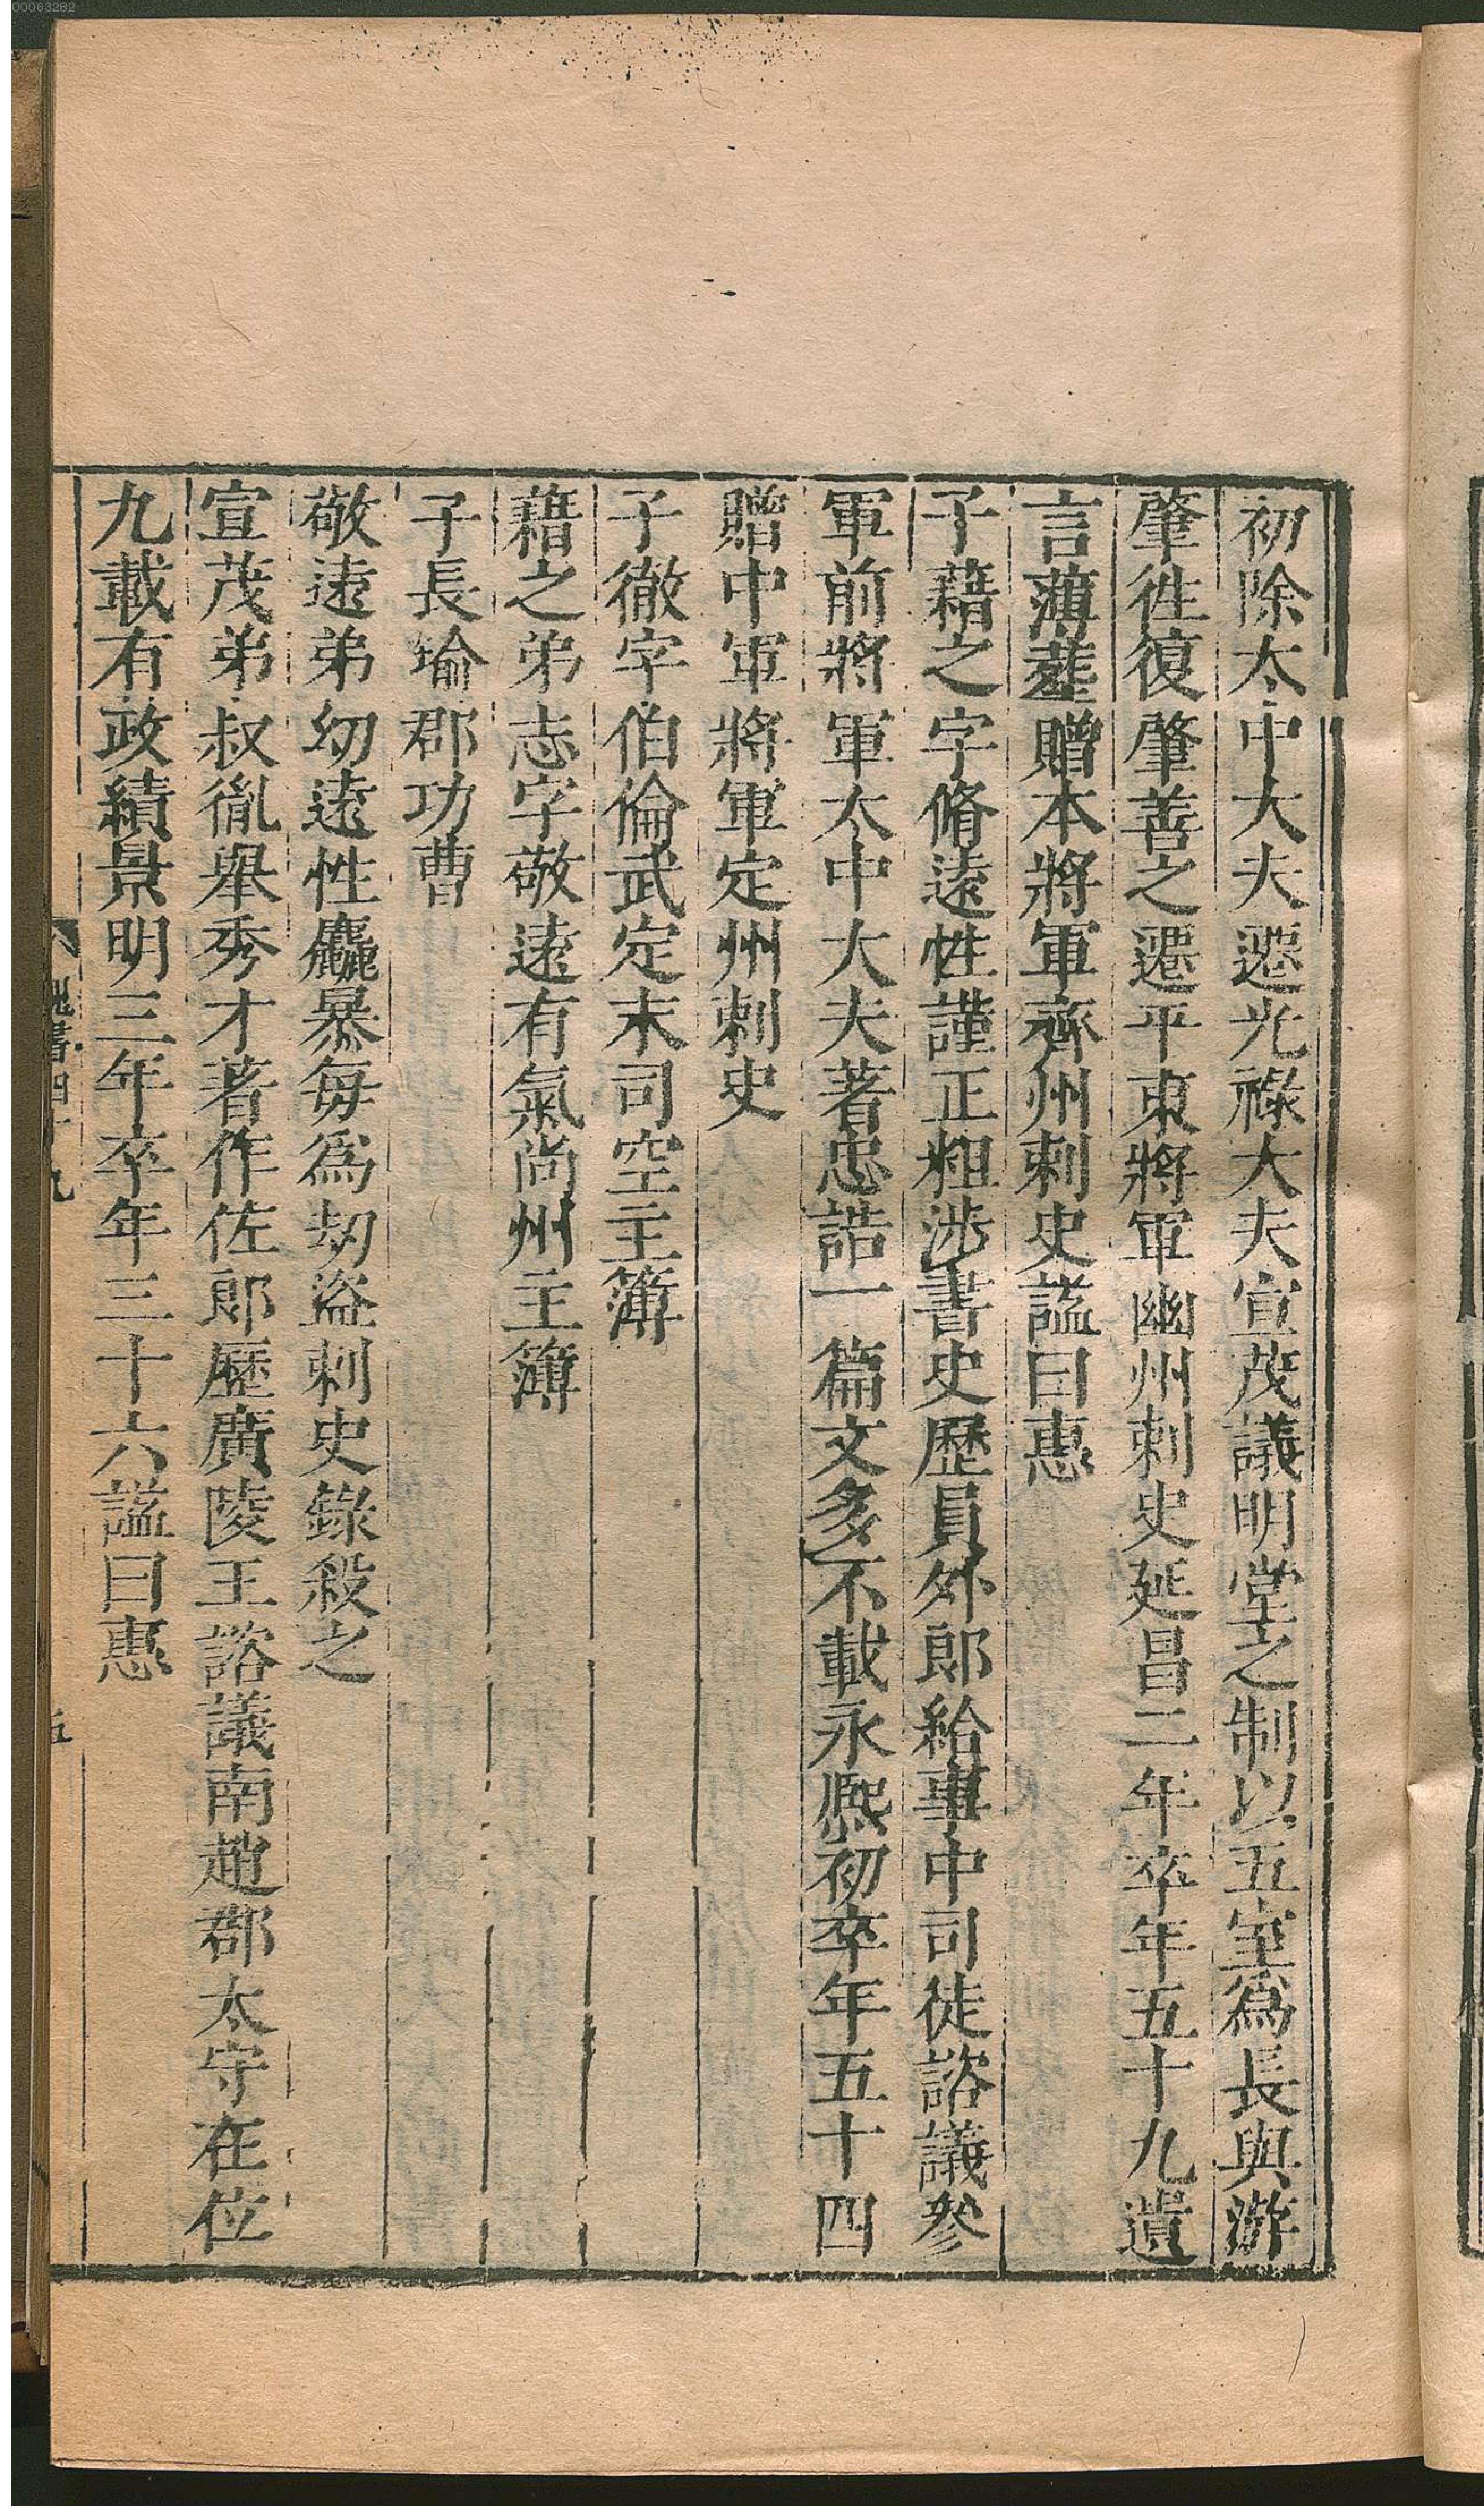 初除太中大夫遷光祿大夫宣茂議明堂之制以五室爲長與游
肇徃復肇善之遷平東將軍幽州刺史延昌二年卒年五十九遺
言薄葬贈本將軍齊州刺史謚曰惠
子藉之字脩遠性謹正粗涉書史歷員外郎給事中司徒諮議參
軍前將軍太中大夫著忠誥一篇文多不載永熙初卒年五十四
贈中軍將軍定州刺史
子徹字伯倫武定末司空主簿
藉之弟志字敬遠有氣尚州主簿
子長瑜郡功曹
敬遠弟幼遠性麤暴每爲劫盜刺史錄殺之
宣茂弟叔胤舉秀才著作佐郎歷廣陵王諮議南趙郡太守在位
九載有政績景明三年卒年三十六謚曰惠
魏書四十九
五
00063282